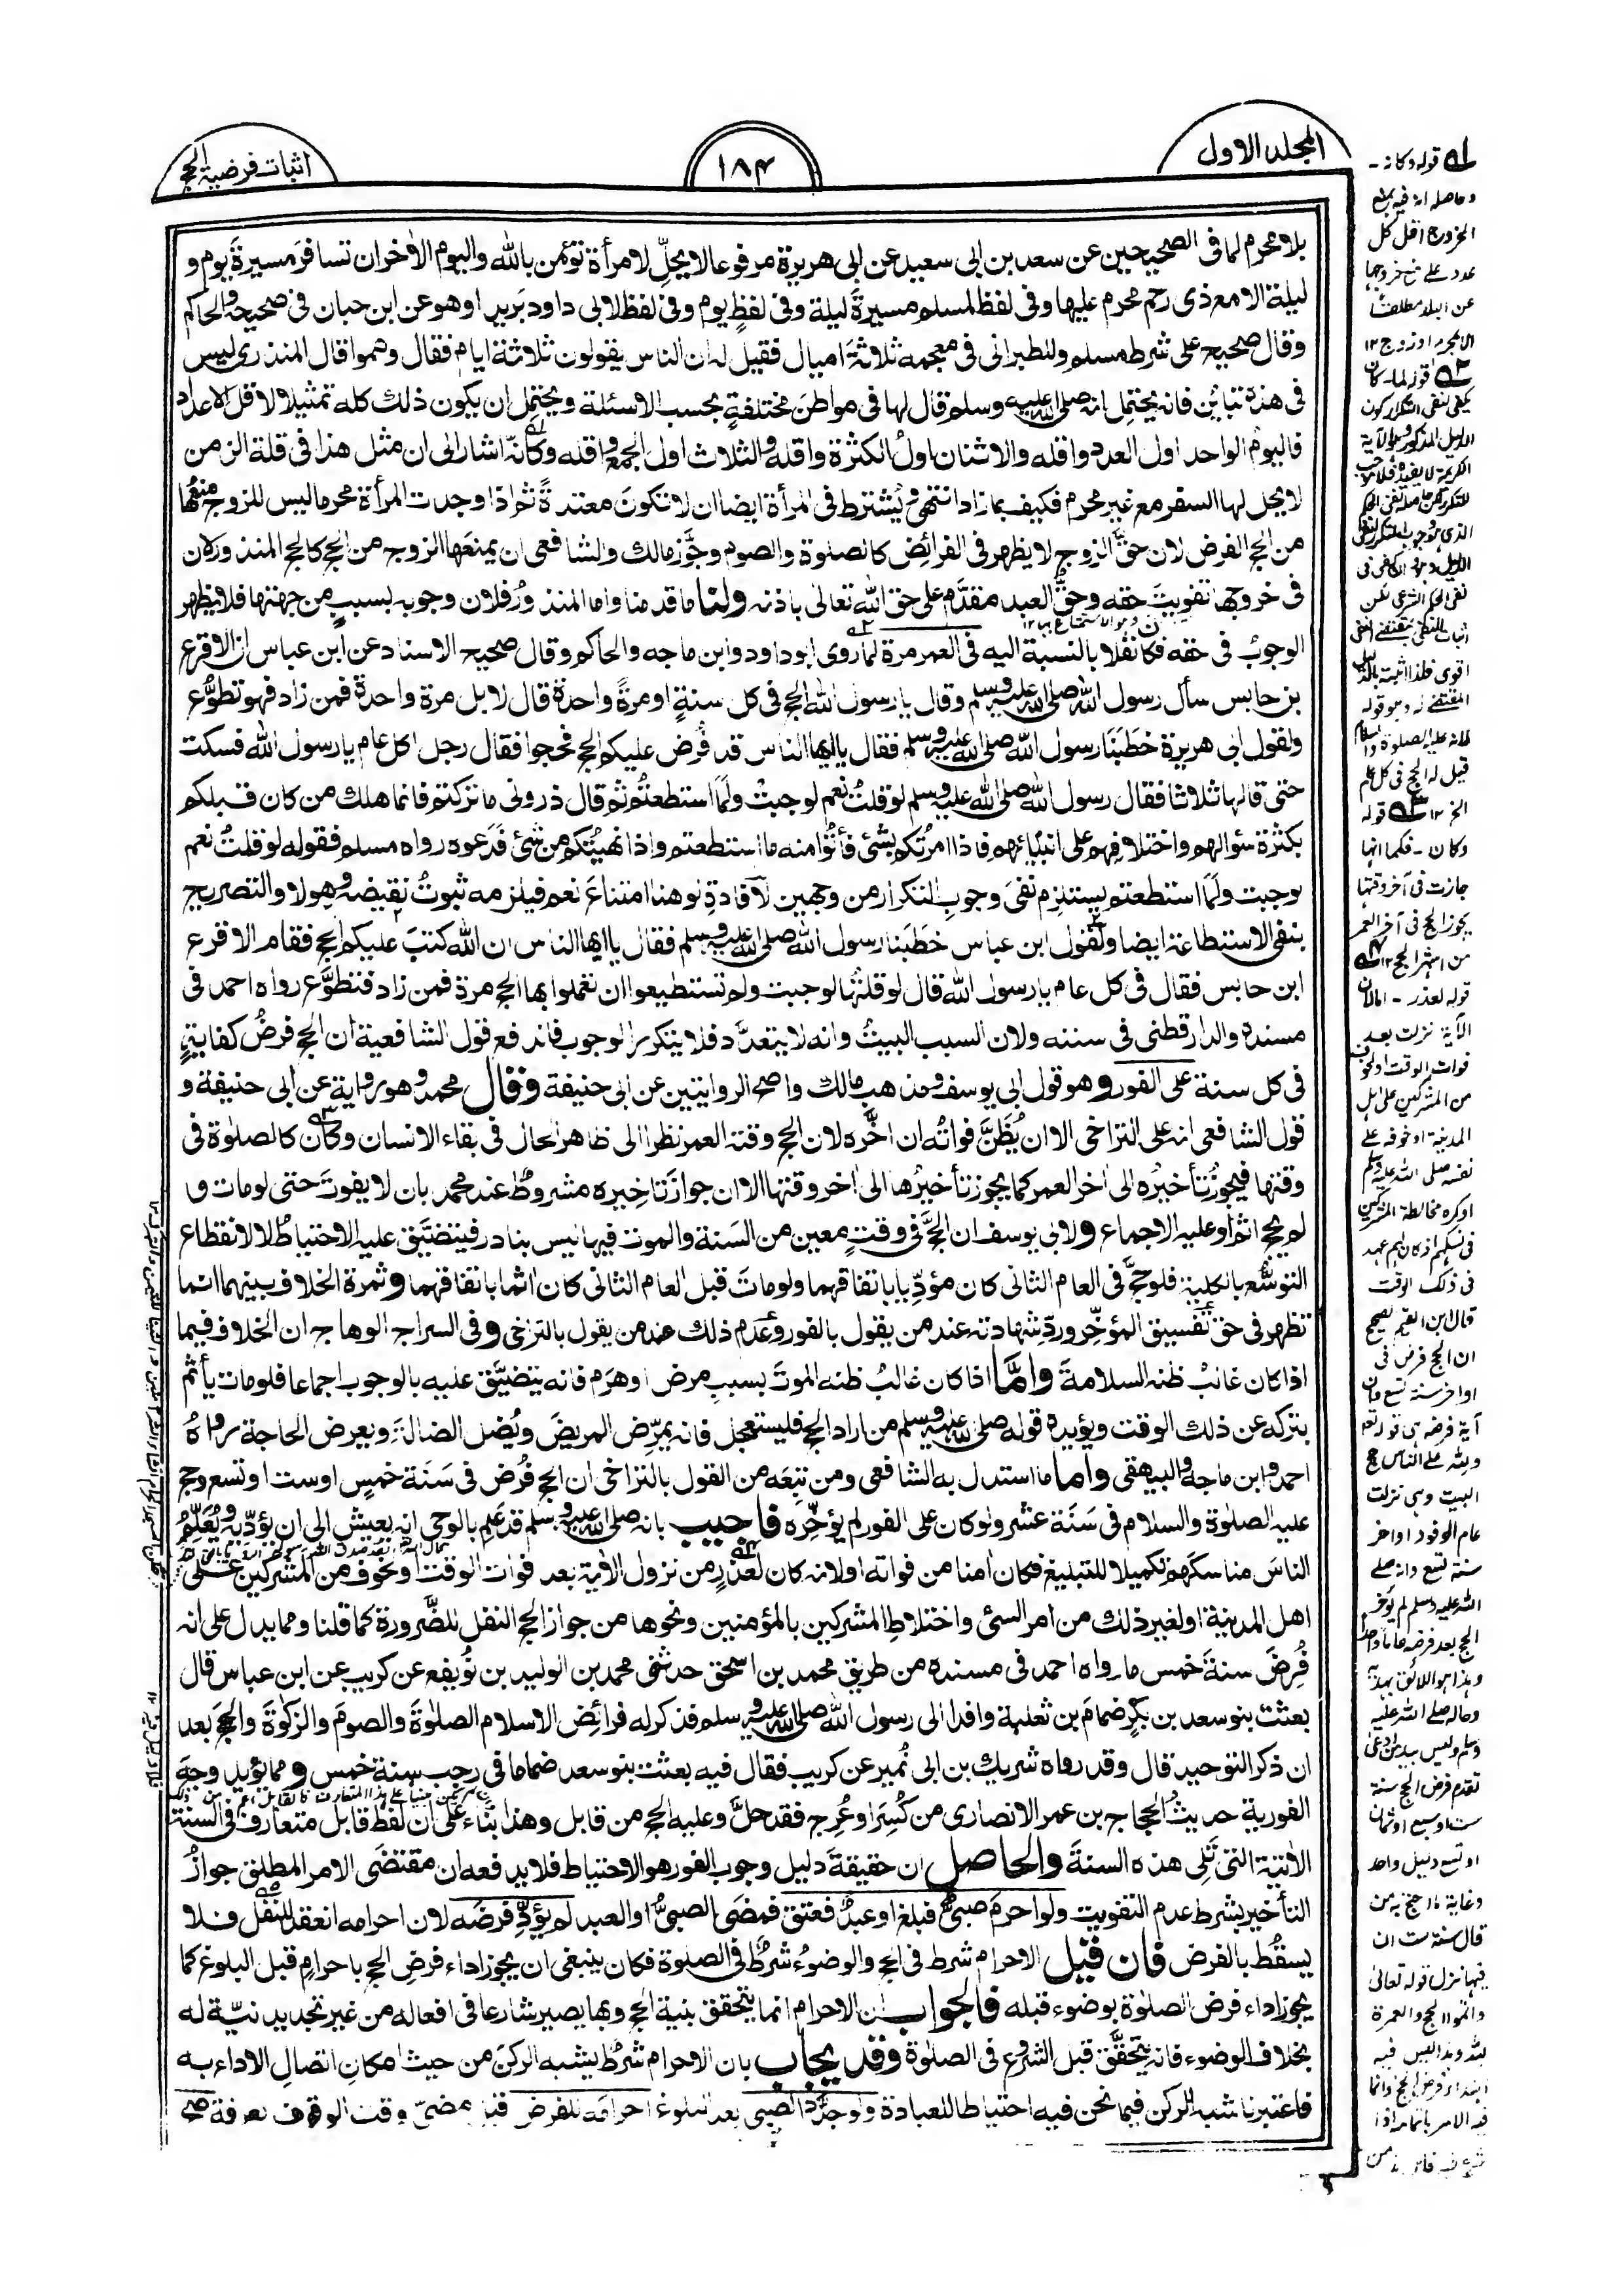 المجلد الاول
١٨٤
اثبات فرضية الحج
بلا محرم لما فى الصحيحين عن سعد بن ابى سعيد عن ابى هريرة مرفوعا لا يحلّ لامرأة تؤمن بالله واليوم الاٰخر ان تسافر مسيرةَ يوم و
ليلة الا مع ذى رحم محرم عليها وفى لفظ لمسلم مسيرةَ ليلة وفى لفظٍ يوم وفى لفظ لابى داود بَرِيدا وهو عن ابن حبان فى صحيحه والحاكم
وقال صحيح على شرط مسلم وللطبرانى فى معجمه ثلاثةَ اميال فقيل له ان الناس يقولون ثلاثة ايام فقال وهموا قال المنذرى ليس
فى هذه تبائن فانه يحتمل انه صلى الله عليه وسلم قال لها فى مواطنَ مختلفةٍ بحسب الاسئلة ويحتمل ان يكون ذلك كله تمثيلا لاقل الاعداد
فاليوم الواحد اول العدد واقله والاثنان اولُ الكثرة واقله والثلاث اول الجمع واقله وكانّه اشار الى ان مثل هذا فى قلة الزمن
لا يحل لها السفر مع غير محرم فكيف بما زاد انتهى ويُشترط فى المرأة ايضا ان لا تكونَ معتدةً ثم اذا وجدت المرأة محرما ليس للزوج منعُها
من الحج الفرض لان حقَّ الزوج لا يظهر فى الفرائض كالصلوة والصوم وجوّز مالك والشافعى ان يمنعَها الزوج من الحج كالحج المنذور لان
فى خروجها تفويتَ حقه وحقُّ العبد مقدَّم على حق الله تعالى باذنه ولنا ما قدمنا واما المنذورُ فلان وجوبه بسببٍ من جهتها فلا يظهر
الوجوبُ فى حقه فكان نفلا بالنسبة اليه فى العمر مرة لما روى ابوداود وابن ماجه والحاكم وقال صحيح الاسناد عن ابن عباس ان الاقرع
بن حابس سأل رسول الله صلى الله عليه وسلم وقال يا رسول الله الحج فى كل سنةٍ او مرةً واحدة قال لا بل مرة واحدة فمن زاد فهو تطوُّع
ولقول ابى هريرة خطَبَنا رسول الله صلى الله عليه وسلم فقال يا ايها الناس قد فُرض عليكم الحج فحجوا فقال رجل اكل عام يا رسول الله فسكت
حتى قالها ثلاثا فقال رسول الله صلى الله عليه وسلم لو قلتُ نعم لوجبتْ ولَمَا استطعتُم ثم قال ذرونى ما تركتكم فانما هلك من كان قبلكم
بكثرة سُؤالهم واختلافِهم على انبيائهم فاذا امرتُكم بشئ فأْتُوا منه ما استطعتم واذا نهيتُكم من شئ فَدَعوه رواه مسلم فقوله لو قلتُ نعم
لوجبت ولَمَا استطعتم يستلزم نفىَ وجوبِ التكرار من وجهين لافادةِ لو هنا امتناعَ نعم فيلزمه ثبوتُ نقيضه وهو لا والتصريح
بنفى الاستطاعة ايضا ولقول ابن عباس خطَبَنا رسول الله صلى الله عليه وسلم فقال يا ايها الناس ان الله كتبَ عليكم الحج فقام الاقرع
ابن حابس فقال فى كل عام يا رسول الله قال لو قلتُها لوجبت ولم تستطيعوا ان تعملوا بها الحج مرة فمن زاد فتطوَّع رواه احمد فى
مسنده والدارقطنى فى سننه ولان السبب البيتُ وانه لا يتعدَّد فلا يتكرر الوجوب فاندفع قول الشافعية ان الحج فرضُ كفايةٍ
فى كل سنة على الفور وهو قول ابى يوسف ومذهب مالك واصح الروايتين عن ابى حنيفة وقال محمد وهو رواية عن ابى حنيفة و
قول الشافعى انه على التراخى الا ان يُظنَّ فواتُه ان اخَّره لان الحج وقته العمر نظرا الى ظاهر الحال فى بقاء الانسان وكان كالصلٰوة فى
وقتها فيجوزُ تأخيرُه الى اٰخر العمر كما يجوز تأخيرُها الى اٰخر وقتها الا ان جوازَ تأخيره مشروطٌ عند محمد بان لا يفوتَ حتى لو مات و
لم يحج اثم وعليه الاجماع ولابى يوسف ان الحجَّ فى وقتٍ معين من السَنة والموت فيها ليس بنادر فيتضيَّق عليه الاحتياطُ لا لانقطاع
التوسُّع بالكلية فلو حجَّ فى العام الثانى كان مؤدِّيا باتفاقهما ولو ماتَ قبل العام الثانى كان اٰثما باتفاقهما وثمرة الخلاف بينهما انما
تظهر فى حق تفسيق المؤخِّر وردِّ شهادته عند من يقول بالفور وعدم ذلك عند من يقول بالتراخى وفى السراج الوهاج ان الخلاف فيما
اذا كان غالبُ ظنه السلامةَ وامَّا اذا كان غالبُ ظنه الموتَ بسببِ مرض او هرَم فانه يتضيَّق عليه بالوجوب اجماعا فلو مات يأثم
بتركه عن ذلك الوقت ويؤيده قوله صلى الله عليه وسلم من اراد الحج فليستعجل فانه يمرّض المريضَ ويُضل الضالةَ ويعرض الحاجة رواهُ
احمد وابن ماجة والبيهقى واما ما استدل به الشافعى ومن تبِعَه من القول بالتراخى ان الحج فُرض فى سَنَة خمسٍ او ست او تسع وحج
عليه الصلوة والسلام فى سَنَة عشر ولو كان على الفور لم يؤخِّره فاجيب بانه صلى الله عليه وسلم قد علم بالوحى انه يعيش الى ان يؤدّيه ويُعَلِّم
الناسَ مناسكَهم تكميلا للتبليغ فكان اٰمنا من فواته او لانه كان لعذرٍ من نزول الاٰية بعد فوات الوقت او لخوف من المشركين على
اهل المدينة او لغير ذلك من امر السئ واختلاطِ المشركين بالمؤمنين ونحوها من جواز الحج النفل للضَّرورة كما قلنا ومما يدل على انه
فُرِضَ سنةَ خمس ما رواه احمد فى مسنده من طريق محمد بن اسحٰق حدثنى محمد بن الوليد بن نُويفع عن كريب عن ابن عباس قال
بعثت بنو سعد بن بكرٍ ضمامَ بن ثعلبة وافدا الى رسول الله صلى الله عليه وسلم فذكر له فرائضَ الاسلام الصلٰوةَ والصومَ والزكٰوةَ والحج بعد
ان ذكر التوحيد قال وقد رواه شريك بن ابى نُمير عن كريب فقال فيه بعثت بنو سعد ضماما فى رجب سنة خمس ومما يؤيد وجهَ
الفورية حديثُ الحجاج بن عمر الانصارى من كُسِرَ او عُرج فقد حلَّ وعليه الحج من قابل وهذا بناء على ان لفظ قابل متعارف فى السنة
الاٰتية التى تَلِى هذه السنةَ والحاصل ان حقيقةَ دليل وجوب الفور هو الاحتياط فلا يدفعه ان مقتضَى الامر المطلق جوازُ
التأخير بشرط عدم التفويت ولو احرمَ صبىٌّ فبلغ او عبدٌ فعتق فمضَى الصبىُّ او العبد لم يؤدِّ فرضَه لان احرامه انعقد للنفل فلا
يسقُط بالفرض فان قيل الاحرام شرط فى الحج والوضوءُ شرطٌ فى الصلوة فكان ينبغى ان يجوز اداء فرضِ الحج باحرامٍ قبل البلوغ كما
يجوز اداء فرض الصلوة بوضوء قبله فالجواب ان الاحرام انما يتحقق بنية الحج وبها يصير شارعا فى افعاله من غير تجديد نيّة له
بخلاف الوضوء فانه يتحقَّق قبل الشروع فى الصلوة وقد يجاب بان الاحرام شرطٌ يشبه الركنَ من حيث امكانِ اتصال الاداء به
فاعتبرنا شبه الركن فيما نحن فيه احتياطا للعبادة ولو جدَّد الصبى بعد البلوغ احرامَه للفرض قبل مضىّ وقت الوقوف بعرفة صح
قوله وكانه -
وحاصله انه فيه يمنع
الخروج اقل كل
عدد على منع خروجها
عن البلد مطلقا
الا بمحرم او زوج ١٢
قوله لما - كان
المقتضى له وهو قوله
قيل له الحج فى كل عام
الخ ١٢ قوله
وكان - فكما انها
جازت فى آخر وقتها
يجوز الحج فى آخر العمر
من اشهر الحج ١٢
قوله لعذر - اما لان
الآية نزلت بعد
فوات الوقت او لخوف
من المشركين على اهل
المدينة او خوفه على
نفسه صلى الله عليه وسلم
او كره مخالطة المشركين
فى نسكهم اذ كان لهم عهد
فى ذلك الوقت
قال ابن القيم الصحيح
ان الحج فرض فى
اواخر سنة تسع وان
آية فرضه هى قوله تعالى
ولله على الناس حج
البيت وهى نزلت
عام الوفود اواخر
سنة تسع وانه صلى
الله عليه وسلم لم يؤخر
الحج بعد فرضه عاما واحدا
وهذا هو اللائق بهديه
وحاله صلى الله عليه
وسلم وليس بيد من ادعى
تقدم فرض الحج سنة
ست او سبع او ثمان
او تسع دليل واحد
وغاية ما احتج به من
قال سنة ست ان
فيها نزل قوله تعالى
واتموا الحج والعمرة
لله وهذا ليس فيه
ابتداء فرض الحج وانما
فيه الامر باتمامه اذا